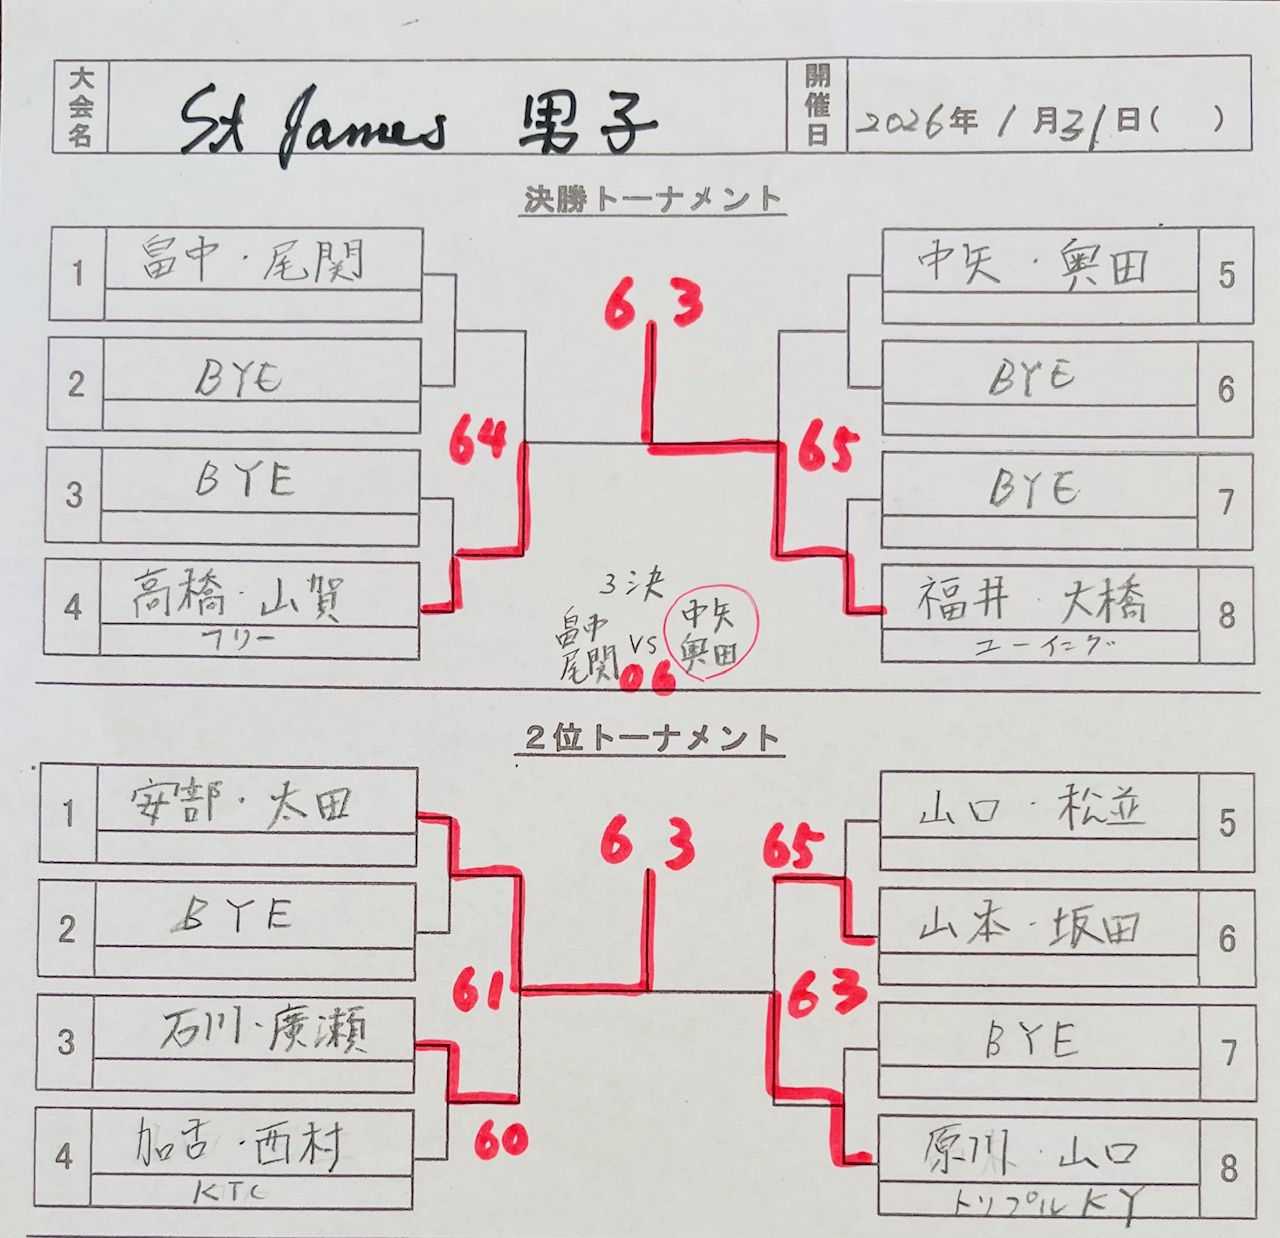 大会名 St James 男子 開催日 2026年1月31日( )
決勝トーナメント
1 畠中・尾関
中矢・奥田 5
6 3
2 BYE
BYE 6
64
65
3 BYE
BYE 7
4 高橋・山賀
フリー
福井・大橋 8
ユーイング
3決
畠中
尾関
vs
中矢
奥田
06
2位トーナメント
1 安部・太田
山口・松並 5
6 3
65
2 BYE
山本・坂田 6
61
63
3 石川・廣瀬
BYE 7
60
4 加古・西村
KTC
原川・山口 8
トリプルKY